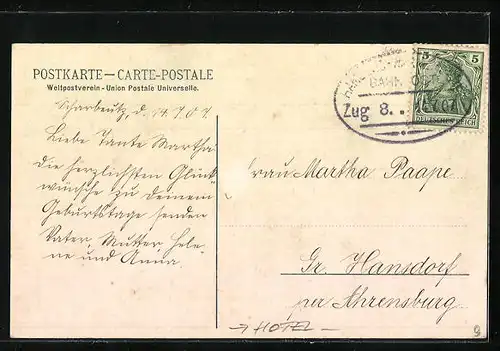 POSTKARTE — CARTE-POSTALE
Weltpostverein - Union Postale Universelle.
Scharbeutz, d. 14.7.07.
Liebe Tante Martha
die herzlichsten Glück
wünsche zu Deinem
Geburtstage senden
Vater, Mutter, Hele-
ne und Anna
BAHNPOST
Zug 8.
5 5
DEUTSCHES REICH
Frau Martha Paape
Gr. Hansdorf
per Ahrensburg.
→ HOTEL